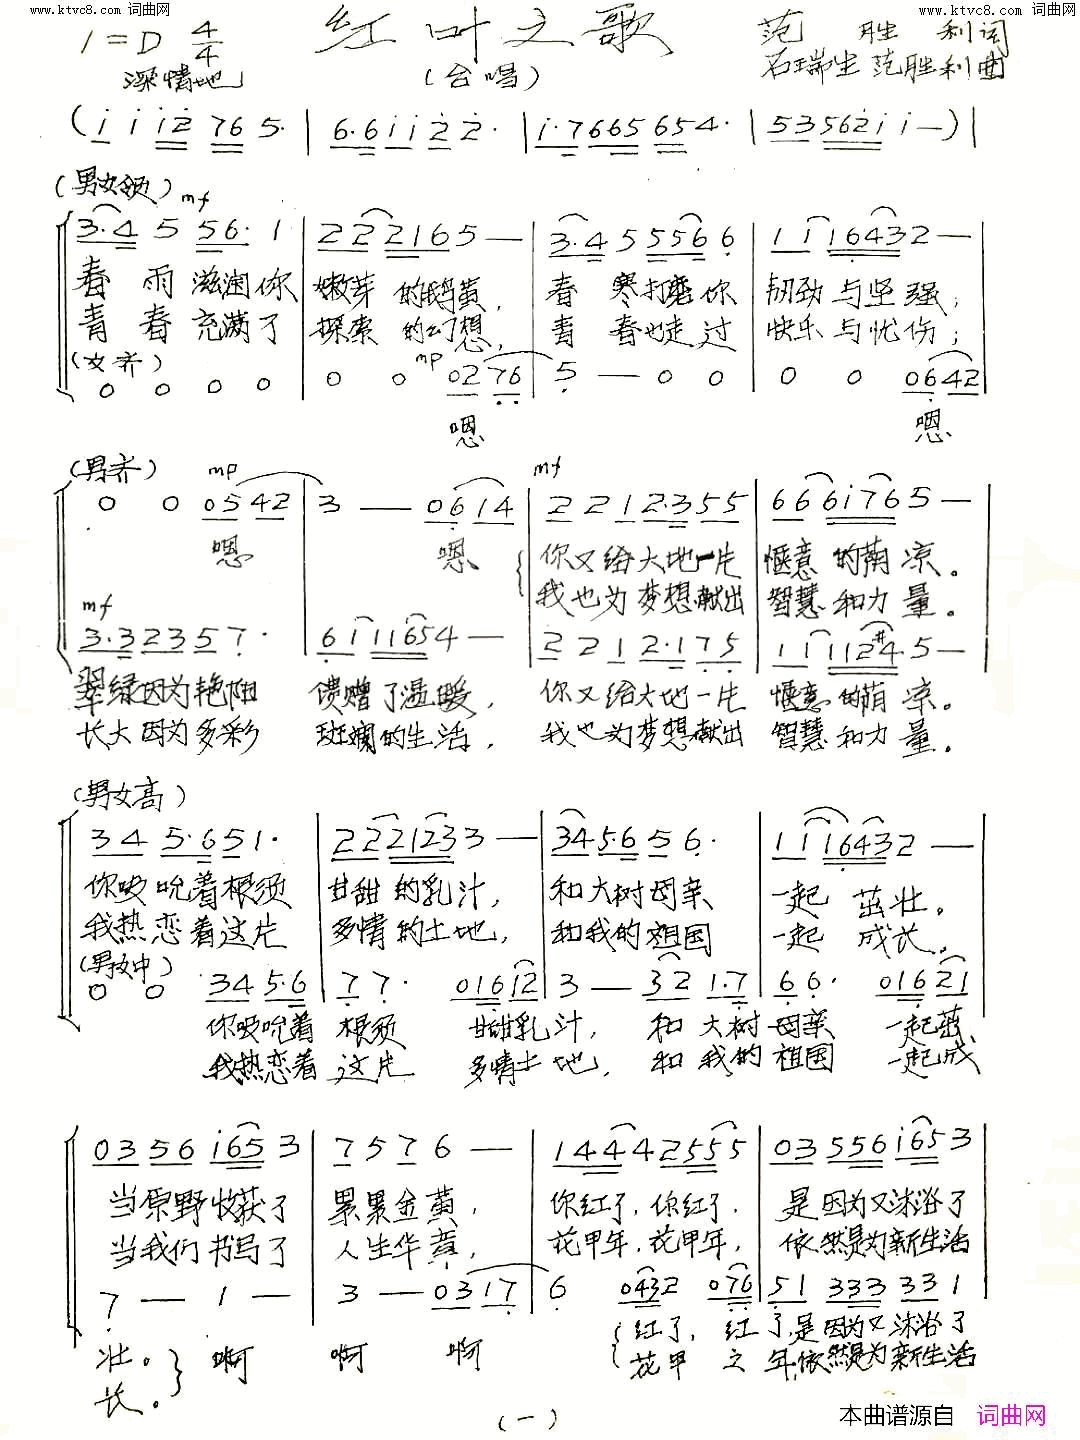 www.ktvc8.com 词曲网 www.ktvc8.com 词曲网
1=D 4/4 红叶之歌 范胜利词
深情地 (合唱) 石瑞生 范胜利曲
(i i i2 76 5· | 6·6 i i 2 2· | i·7665 65 4· | 53 562i i —) |
(男女领) mf
3·4 5 56· 1 | 2 2 2 2165 — | 3·4 5 5566 6 | 1 1 16432 —
春雨滋润你 嫩芽的鹅黄, 春寒打磨你 韧劲与坚强;
青春充满了 探索的幻想, 青春也走过 快乐与忧伤;
(女齐) mp
0 0 0 0 | 0 0 02 76 | 5 — 0 0 | 0 0 0642
嗯 嗯
(男齐) mp mf
0 0 05 42 | 3 — — 0614 | 2 2 1 2·3 5 5 | 6 6 6i76 5 —
嗯 嗯 你又给大地一片 惬意的荫凉。
我也为梦想献出 智慧和力量。
mf
3·3 23 5 7· | 6 1 11654 — | 2 2 1 2·1 7 5 | 1 1 112#4·5 —
翠绿因为艳阳 馈赠了温暖, 你又给大地一片 惬意的荫凉。
长大因为多彩 斑斓的生活, 我也为梦想献出 智慧和力量。
(男女高)
34 5·6 5 1· | 2 2 21233 — | 34 5·6 5 6· | 1 1 16432 —
你吸吮着根须 甘甜的乳汁, 和大树母亲 一起茁壮。
我热恋着这片 多情的土地, 和我的祖国 一起成长。
(男女中)
0 0 34 5·6 | 7 7· 01612 | 3 — 32 1·7 | 6 6· 01621
你吸吮着 根须 甘甜乳汁, 和大树 母亲 一起茁
我热恋着 这片 多情土地, 和我的 祖国 一起成
03 56 i65 3 | 7 5 7 6 — — | 144 4 2555 | 03 556 i65 3
当原野收获了 累累金黄, 你红了,你红了, 是因为又沐浴了
当我们书写了 人生华章, 花甲年,花甲年, 依然是为新生活
7 — 1 — | 3 — — 0317 | 6 0432 076 | 51 333 33 1
壮。 啊 啊 啊 红了, 红了,是因为又沐浴了
长。 花甲之年,依然是为新生活
(一)
本曲谱源自 词曲网